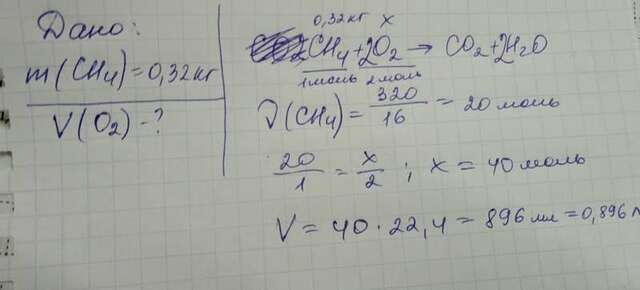 Дано:
m(CH₄)=0,32кг
V(O₂)-?
0,32кг x
CH₄+2O₂→CO₂+2H₂O
1моль 2моль
ν(CH₄)=320/16=20моль
20/1=x/2; x=40моль
V=40·22,4=896мл=0,896л